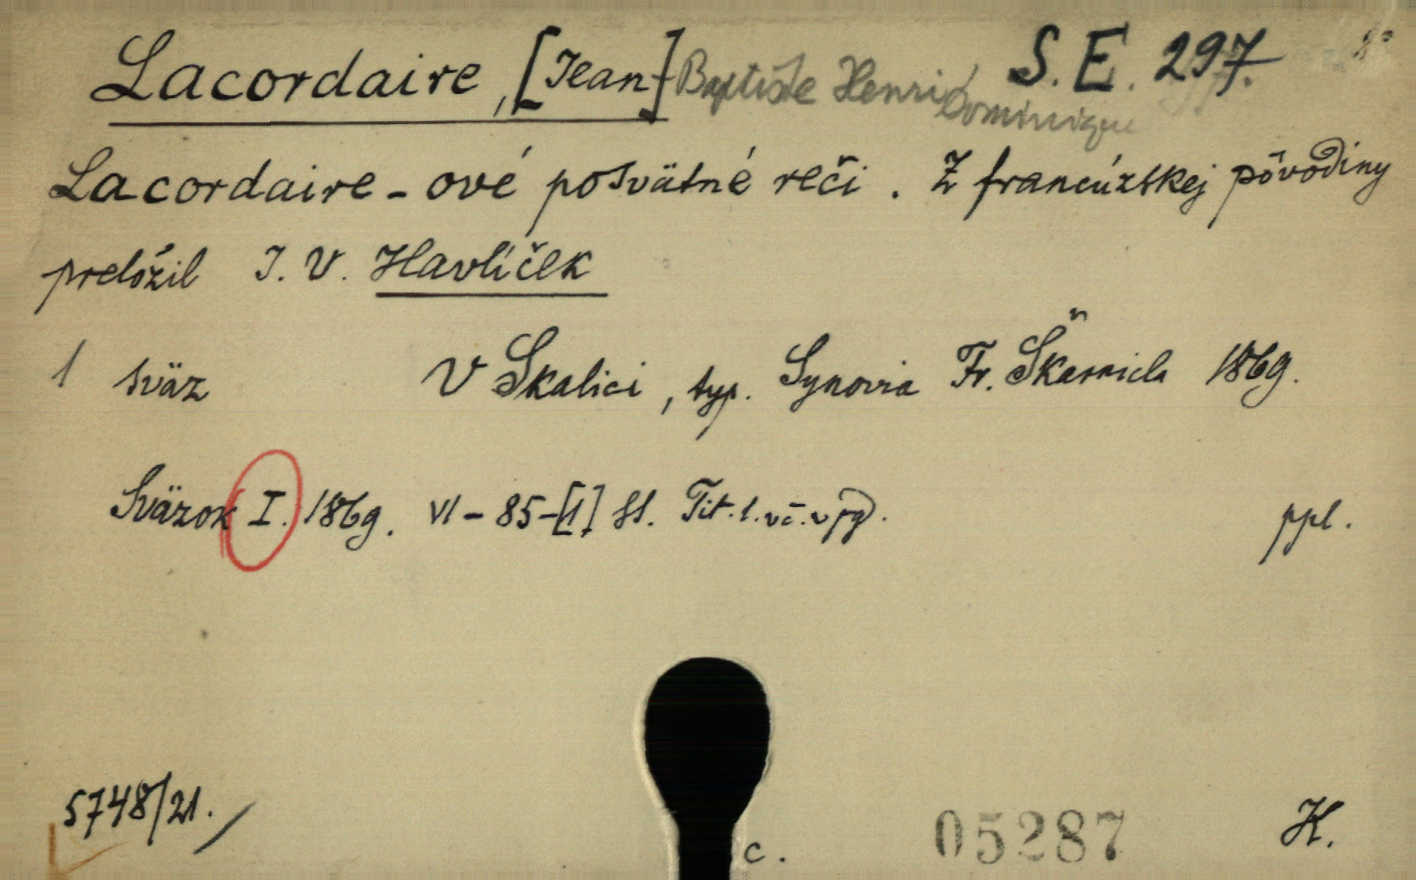 Lacordaire, [Jean-] Baptiste Henri Dominique S. E. 297. 8°
Lacordaire-ové posvätné reči. Z francúzskej pôvodiny
preložil J. V. Havlíček
1 sväz V Skalici, typ. Synovia Fr. Škarnicla 1869.
Sväzok I. 1869. VI-85-[1] st. Tit. l. vč. v pg. ppl.
5748/21.
c. 05287 K.